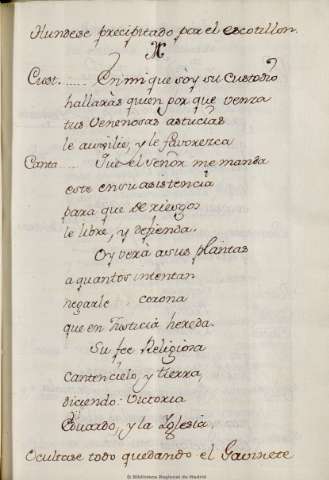 Hundese precipitado por el escotillon.
Cust..... En mi que soy su custodio
hallaràs quien por que venza
tus venenosas astucias
le auxilie, y le favorezca
Canta.... Que el Señor me manda
este en su asistencia
para que de riesgos
le libre, y defienda.
Oy verà a sus plantas
a quantos intentan
negarle corona
que en Justicia hereda.
Su fee Religiosa
canten cielo, y tierra,
diciendo: Victoria
Eduardo, y la Iglesia.
Ocultase todo quedando el Gavinete
© Biblioteca Regional de Madrid